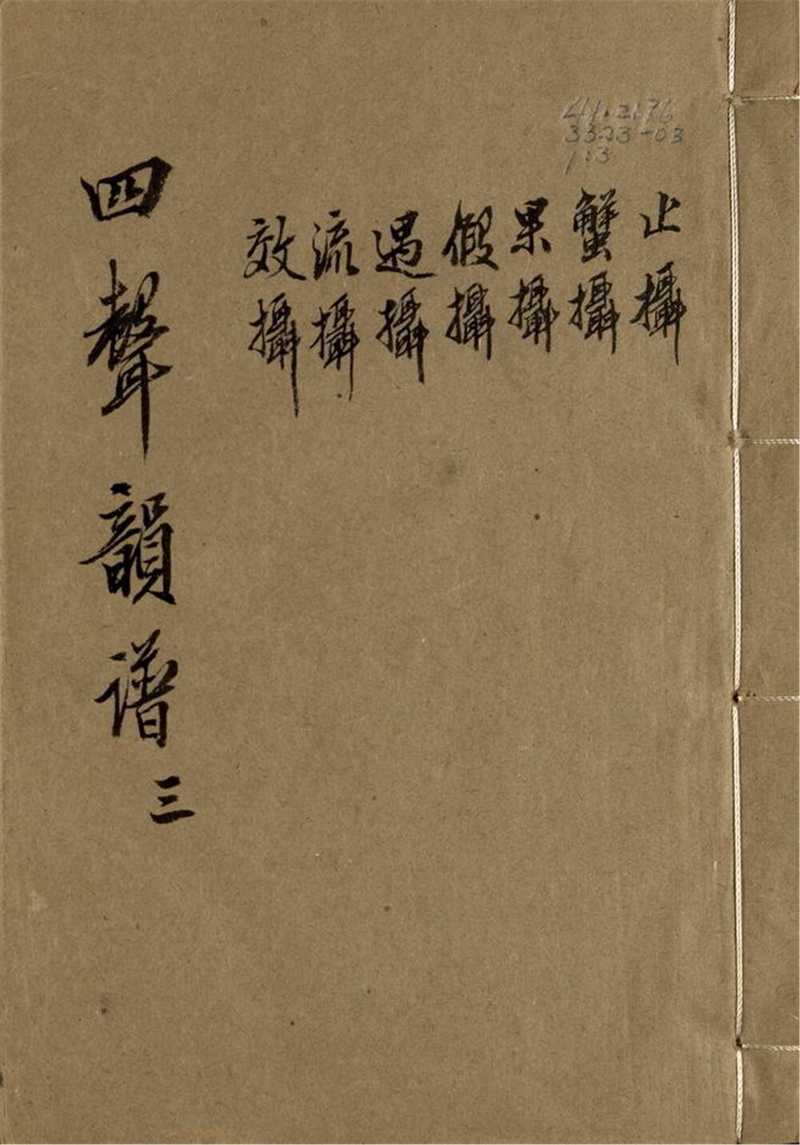 止攝
蟹攝
果攝
假攝
遇攝
流攝
效攝
四聲韻譜 三
3323-03
1:3